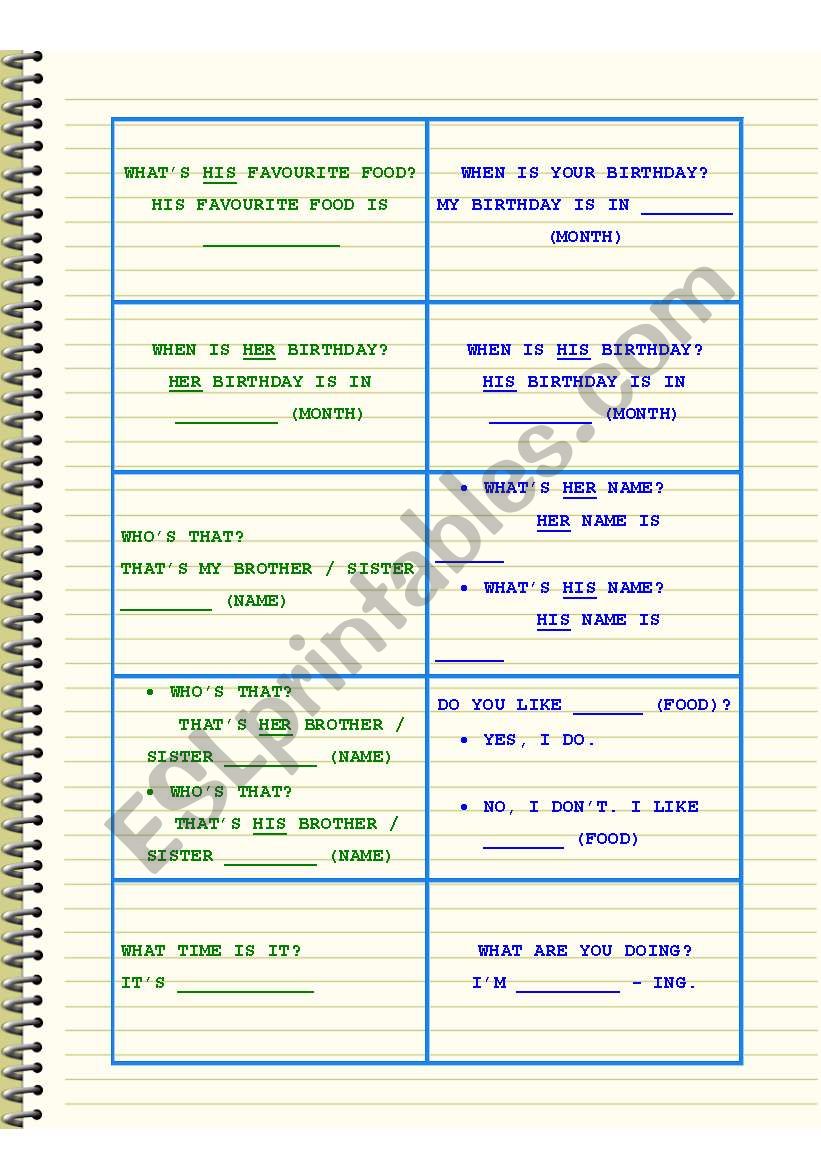 WHAT'S HIS FAVOURITE FOOD?
HIS FAVOURITE FOOD IS
____________
WHEN IS YOUR BIRTHDAY?
MY BIRTHDAY IS IN ________
(MONTH)
WHEN IS HER BIRTHDAY?
HER BIRTHDAY IS IN
_________ (MONTH)
WHEN IS HIS BIRTHDAY?
HIS BIRTHDAY IS IN
_________ (MONTH)
WHO'S THAT?
THAT'S MY BROTHER / SISTER
________ (NAME)
• WHAT'S HER NAME?
HER NAME IS
______
• WHAT'S HIS NAME?
HIS NAME IS
______
• WHO'S THAT?
THAT'S HER BROTHER /
SISTER ________ (NAME)
• WHO'S THAT?
THAT'S HIS BROTHER /
SISTER ________ (NAME)
DO YOU LIKE ______ (FOOD)?
• YES, I DO.
• NO, I DON'T. I LIKE
_______ (FOOD)
WHAT TIME IS IT?
IT'S ____________
WHAT ARE YOU DOING?
I'M _________ – ING.
ESLprintables.com